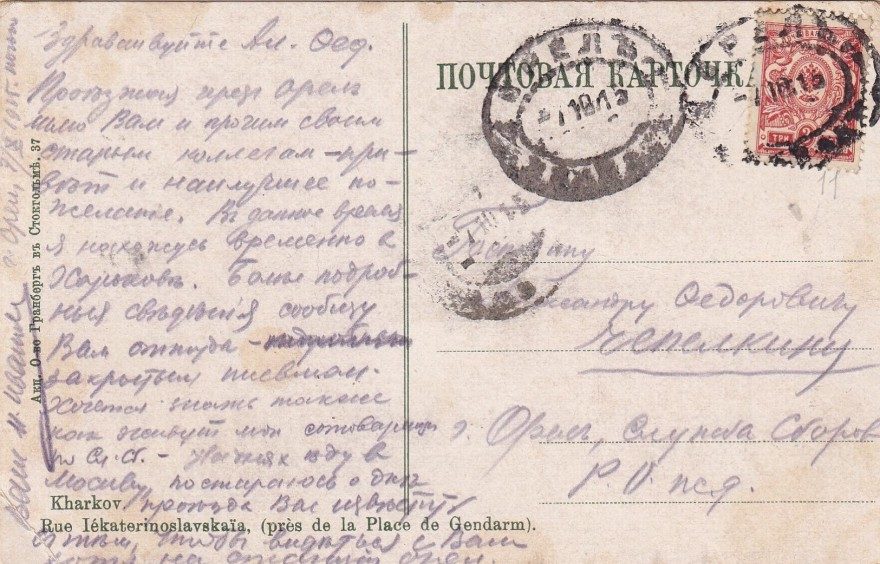 Здравствуйте Ал. Фед.
Проезжая чрез Орелъ
шлю Вам и прочим своим
старым коллегам – при-
вѣт и наилучшее по-
желание. В данное время
я нахожусь временно в
Харьковѣ. Болѣе подроб-
ныя свѣдѣния сообщу
Вам оттуда –
закрытым письмом.
Хочется знать также
как живут мои сотоварищи
по Сл. Сб. – На днях еду в
Москву, постараюсь о дне
проезда Вас известить
с тѣм, чтобы видеться с Вами
хотя на станции Орел.
Ваш И. Иванов
г. Орел, 1915г.
Акц. О-во Гранбергъ въ Стокгольмѣ. 37
Kharkov.
Rue Iékaterinoslavskaïa, (près de la Place de Gendarm).
ПОЧТОВАЯ КАРТОЧКА
ОРЕЛЪ
ТРИ
11
Господину
Александру Федоровичу
Чепелкину
г. Орел, Служба Сборов
Р. О. ж.д.